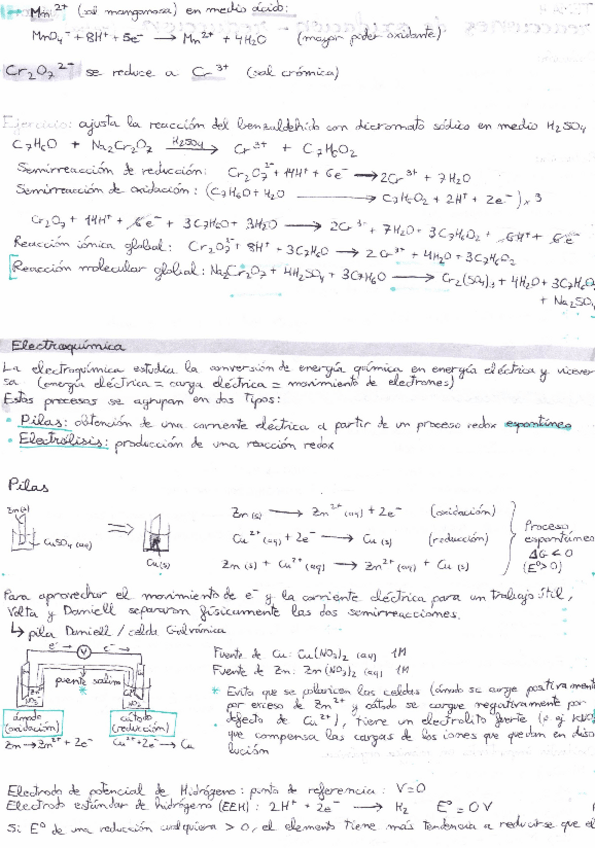 Mn²⁺ (sal manganosa) en medio ácido:
MnO₄⁻ + 8H⁺ + 5e⁻ → Mn²⁺ + 4H₂O (mayor poder oxidante)
Cr₂O₇²⁻ se reduce a Cr³⁺ (sal crómica)
Ejercicio: ajusta la reacción del benzaldehído con dicromato sódico en medio H₂SO₄
C₇H₆O + Na₂Cr₂O₇ H₂SO₄→ Cr³⁺ + C₇H₆O₂
Semirreacción de reducción: Cr₂O₇²⁻ + 14H⁺ + 6e⁻ → 2Cr³⁺ + 7H₂O
Semirreacción de oxidación: (C₇H₆O + H₂O → C₇H₆O₂ + 2H⁺ + 2e⁻) x 3
Cr₂O₇ + 14H⁺ + 6e⁻ + 3C₇H₆O + 3H₂O → 2Cr³⁺ + 7H₂O + 3C₇H₆O₂ + 6H⁺ + 6e⁻
Reacción iónica global: Cr₂O₇²⁻ + 8H⁺ + 3C₇H₆O → 2Cr³⁺ + 4H₂O + 3C₇H₆O₂
Reacción molecular global: Na₂Cr₂O₇ + 4H₂SO₄ + 3C₇H₆O → Cr₂(SO₄)₃ + 4H₂O + 3C₇H₆O
+ Na₂SO₄
Electroquímica
La electroquímica estudia la conversión de energía química en energía eléctrica y vicever
sa (energía eléctrica = carga eléctrica = movimiento de electrones)
Estos procesos se agrupan en dos tipos:
• Pilas: obtención de una corriente eléctrica a partir de un proceso redox espontáneo
• Electrólisis: producción de una reacción redox
Pilas
Zn(s)
CuSO₄(aq)
⇒
Cu(s)
Zn(s) → Zn²⁺(aq) + 2e⁻ (oxidación)
Cu²⁺(aq) + 2e⁻ → Cu(s) (reducción)
Zn(s) + Cu²⁺(aq) → Zn²⁺(aq) + Cu(s)
Proceso
espontáneo
ΔG < 0
(E°>0)
Para aprovechar el movimiento de e⁻ y la corriente eléctrica para un trabajo útil,
Volta y Daniell separaron físicamente las dos semirreacciones.
↳ pila Daniell / celda Galvánica
e⁻ → V e⁻ →
puente salino
*
ánodo
(oxidación)
cátodo
(reducción)
Zn → Zn²⁺ + 2e⁻ Cu²⁺ + 2e⁻ → Cu
Fuente de Cu: Cu(NO₃)₂ (aq) 1M
Fuente de Zn: Zn(NO₃)₂ (aq) 1M
* Evita que se polaricen las celdas (ánodo se carge positivament
por exceso de Zn²⁺ y cátodo se cargue negativamente por
defecto de Cu²⁺), tiene un electrolito fuerte (p ej
que compensa las cargas de los iones que quedan en diso
lución
Electrodo de potencial de Hidrógeno: punto de referencia: V=0
Electrodo estándar de hidrógeno (EEH): 2H⁺ + 2e⁻ → H₂ E° = 0V
Si E° de una reducción cualquiera > 0, el elemento tiene más tendencia a reducirse que el